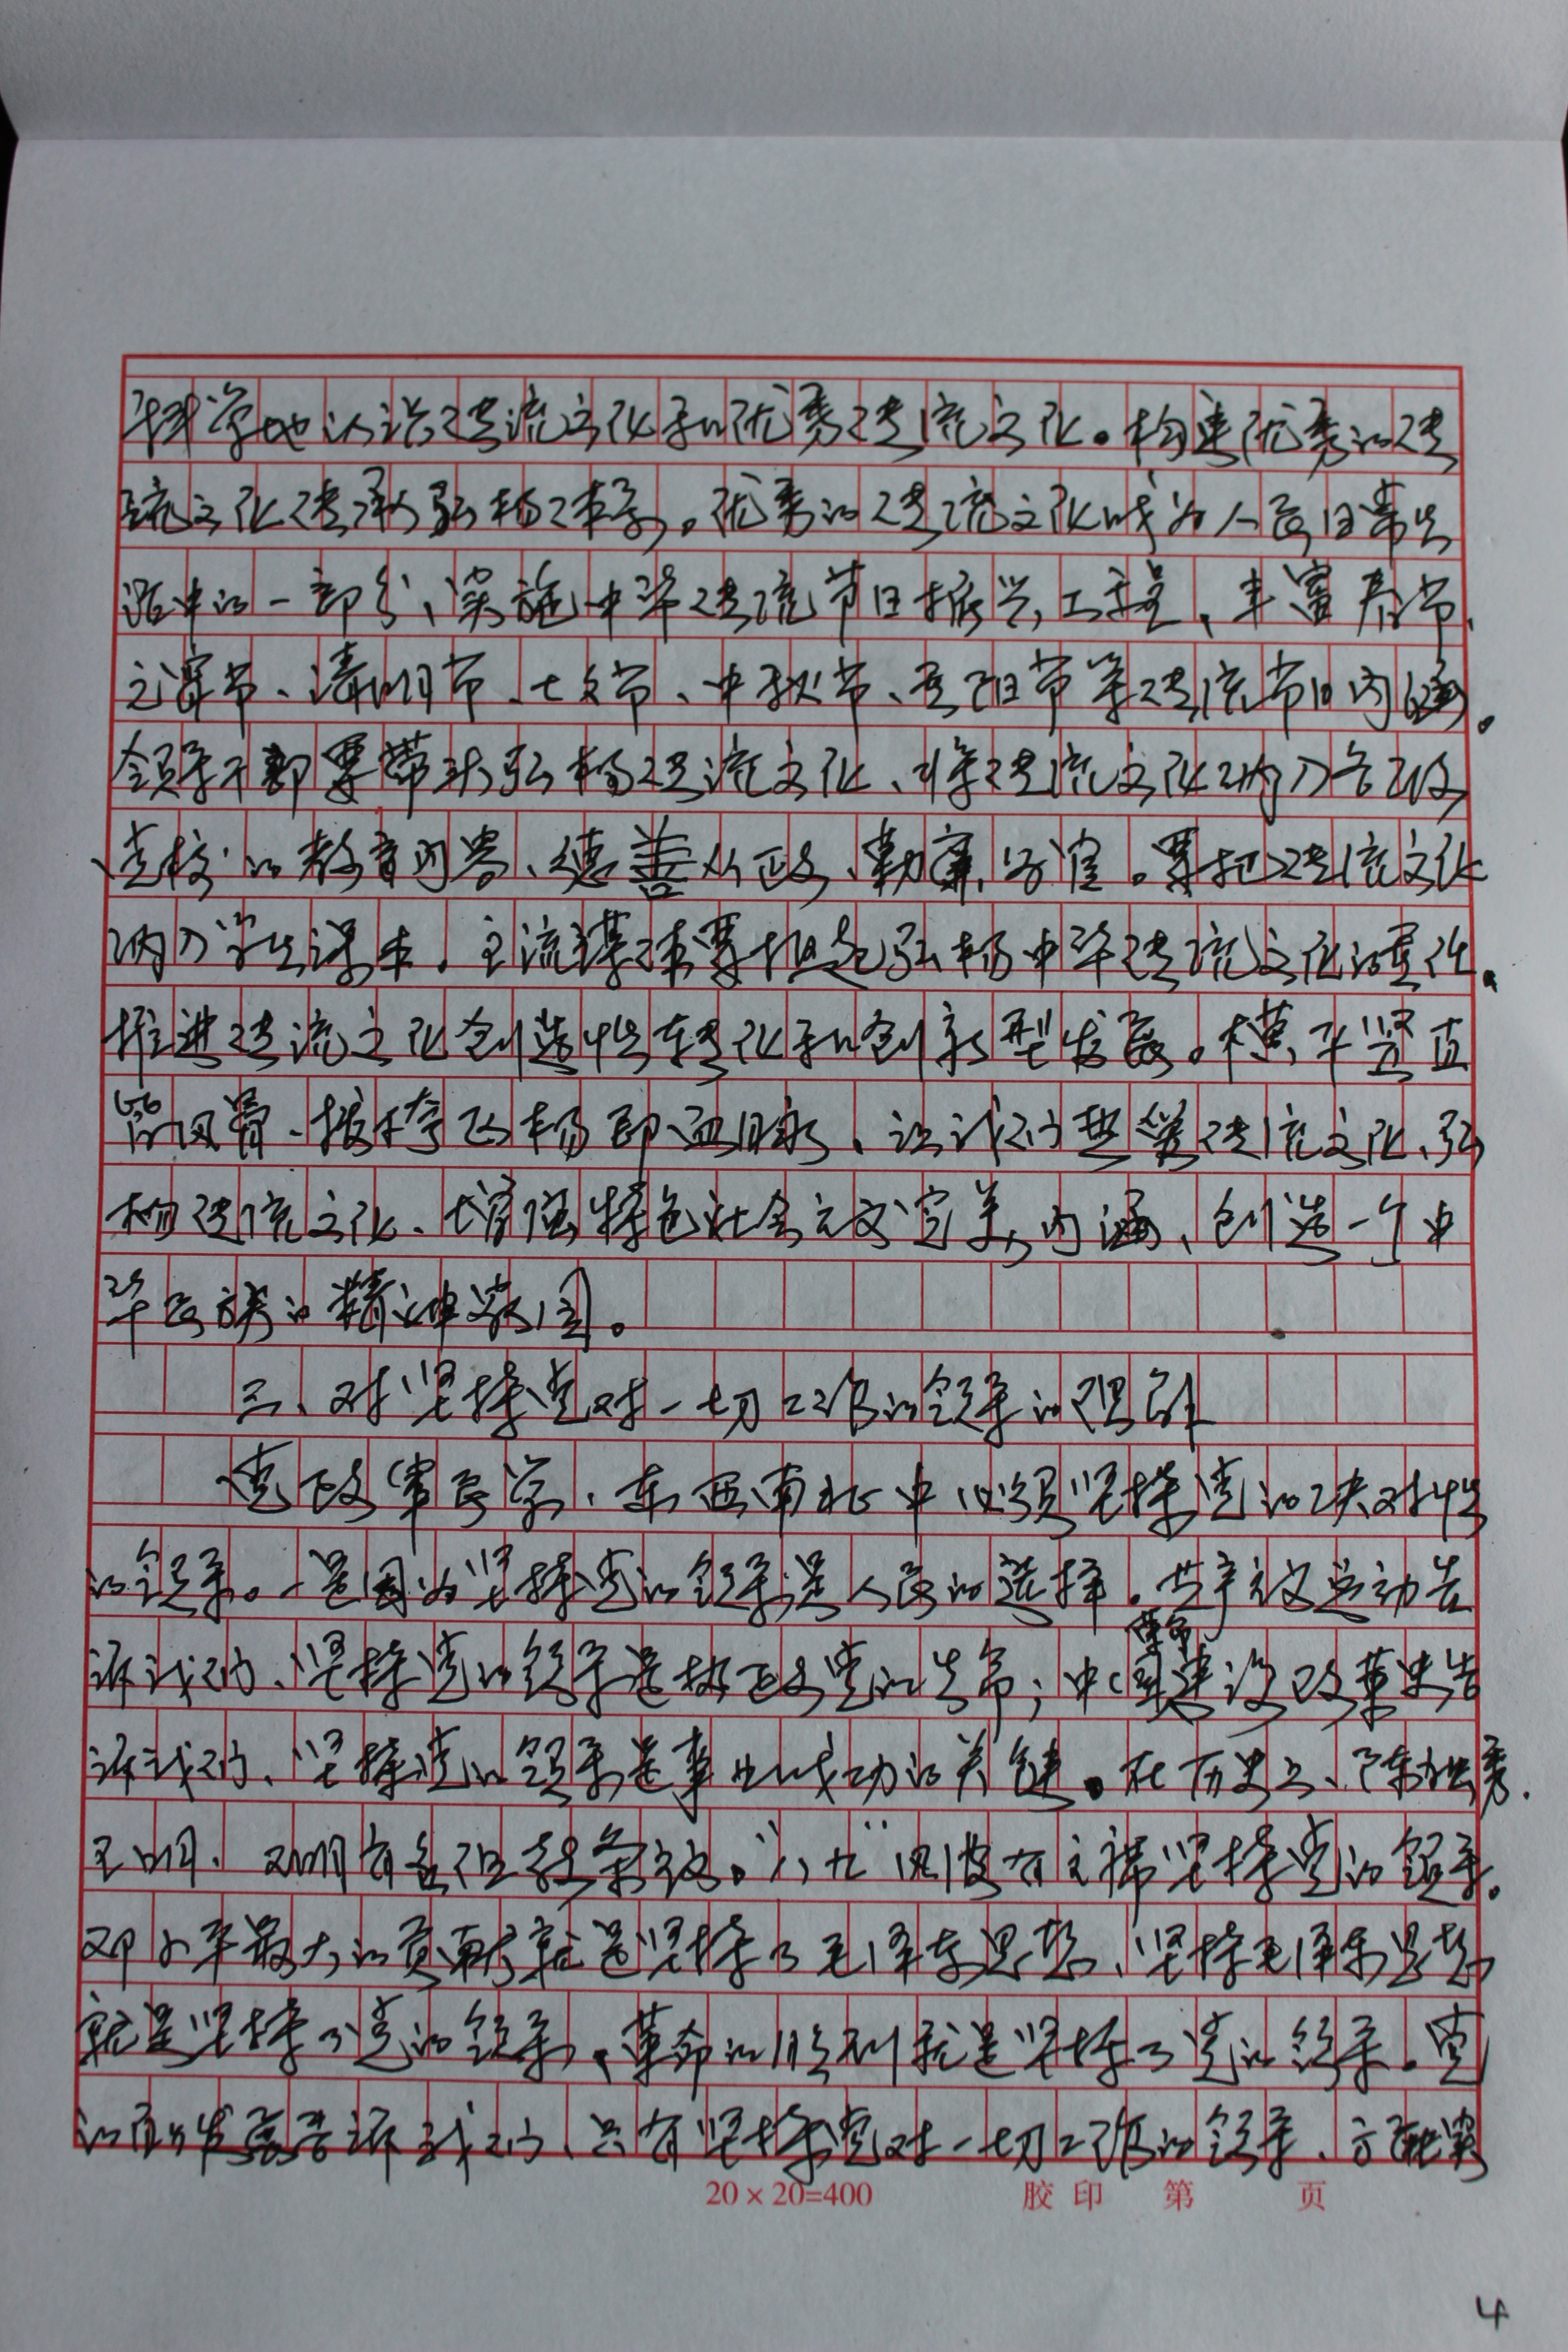 科学地认识传统文化和优秀传统文化。构建优秀的传
统文化传承弘扬体系。优秀的传统文化成为人民日常生
活中的一部分、实施中华传统节日振兴工程、丰富春节、
元宵节、清明节、七夕节、中秋节、重阳节等传统节日内涵。
领导干部要带头弘扬传统文化、将传统文化纳入各级
党校的教育内容、德善从政、勤廉为官。要把传统文化
纳入学生课本。主流媒体要担起弘扬中华传统文化的重任。
推进传统文化创造性转化和创新型发展。横平竖直
皆风骨、撇捺飞扬即血脉、让我们热爱传统文化、弘
扬传统文化、增强特色社会主义完美内涵、创造一个中
华民族的精神家园。
三、对坚持党对一切工作的领导的理解
党政军民学、东西南北中必须坚持党的决对性
的领导。一是因为坚持党的领导是人民的选择。共产主义运动告
诉我们、坚持党的领导是执政党的生命；中国革命建设改革史告
诉我们、坚持党的领导是事业成功的关键。在历史上、陈独秀、
王明、教条主义。"八九"风波
邓小平最大的贡献就是坚持了毛泽东思想、坚持毛泽东思想
就是坚持了党的领导、革命的胜利就是坚持了党的领导。党
的发展告诉我们、只有坚持党对一切工作的领导、方能实
20×20=400 胶印 第 页
4